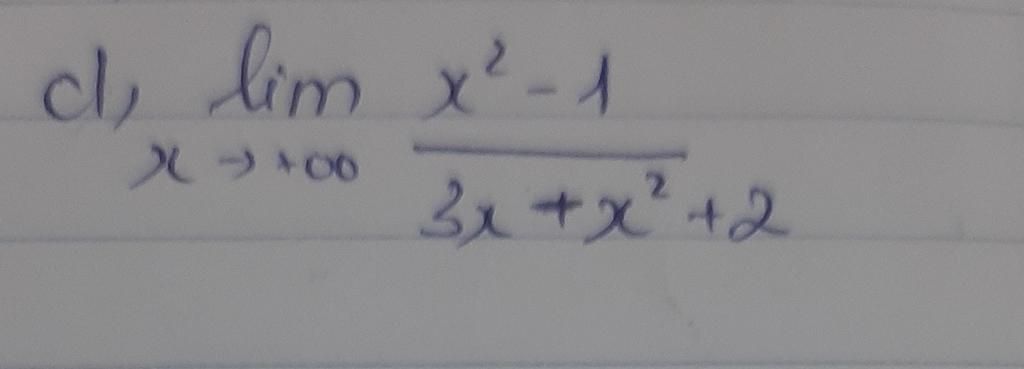 d, lim x² - 1
x → +∞ 3x + x² + 2